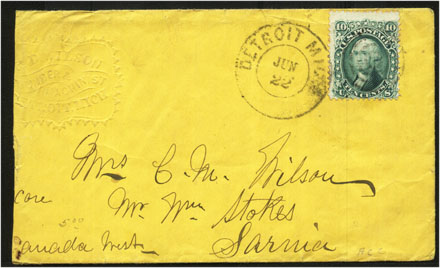 DETROIT MICH
JUN
22
10 10
U.S. POSTAGE
TEN CENTS
Mrs C. M. Wilson
care Mr. Wm Stokes
Canada West Sarnia